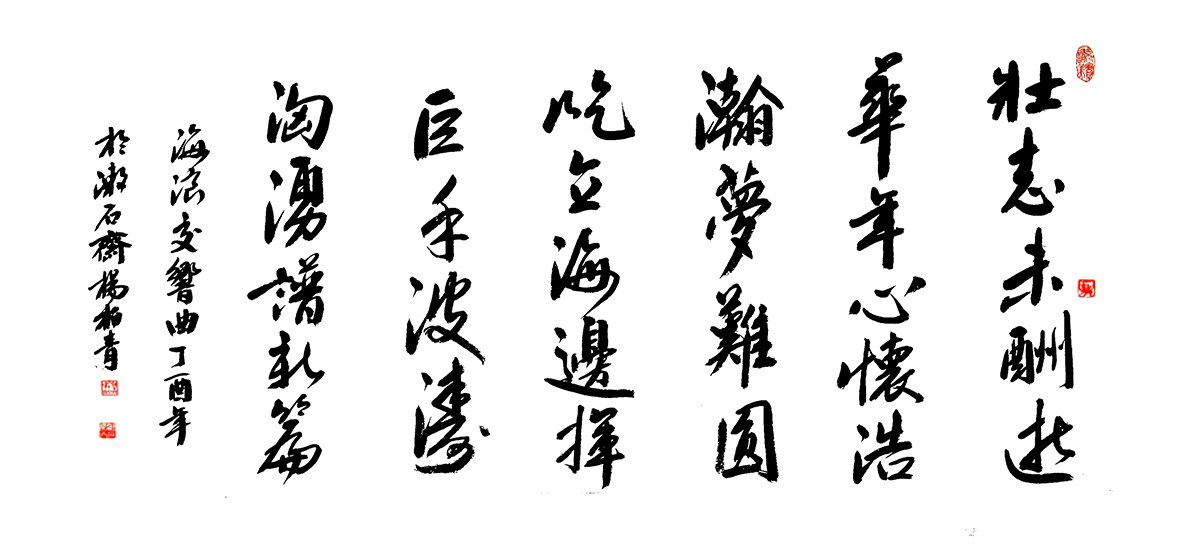 壯志未酬逝
華年心懷浩
瀚夢難圓
屹立海邊揮
巨手波濤
洶湧譜新篇
海浪交響曲丁酉年
於漱石齋楊柏青